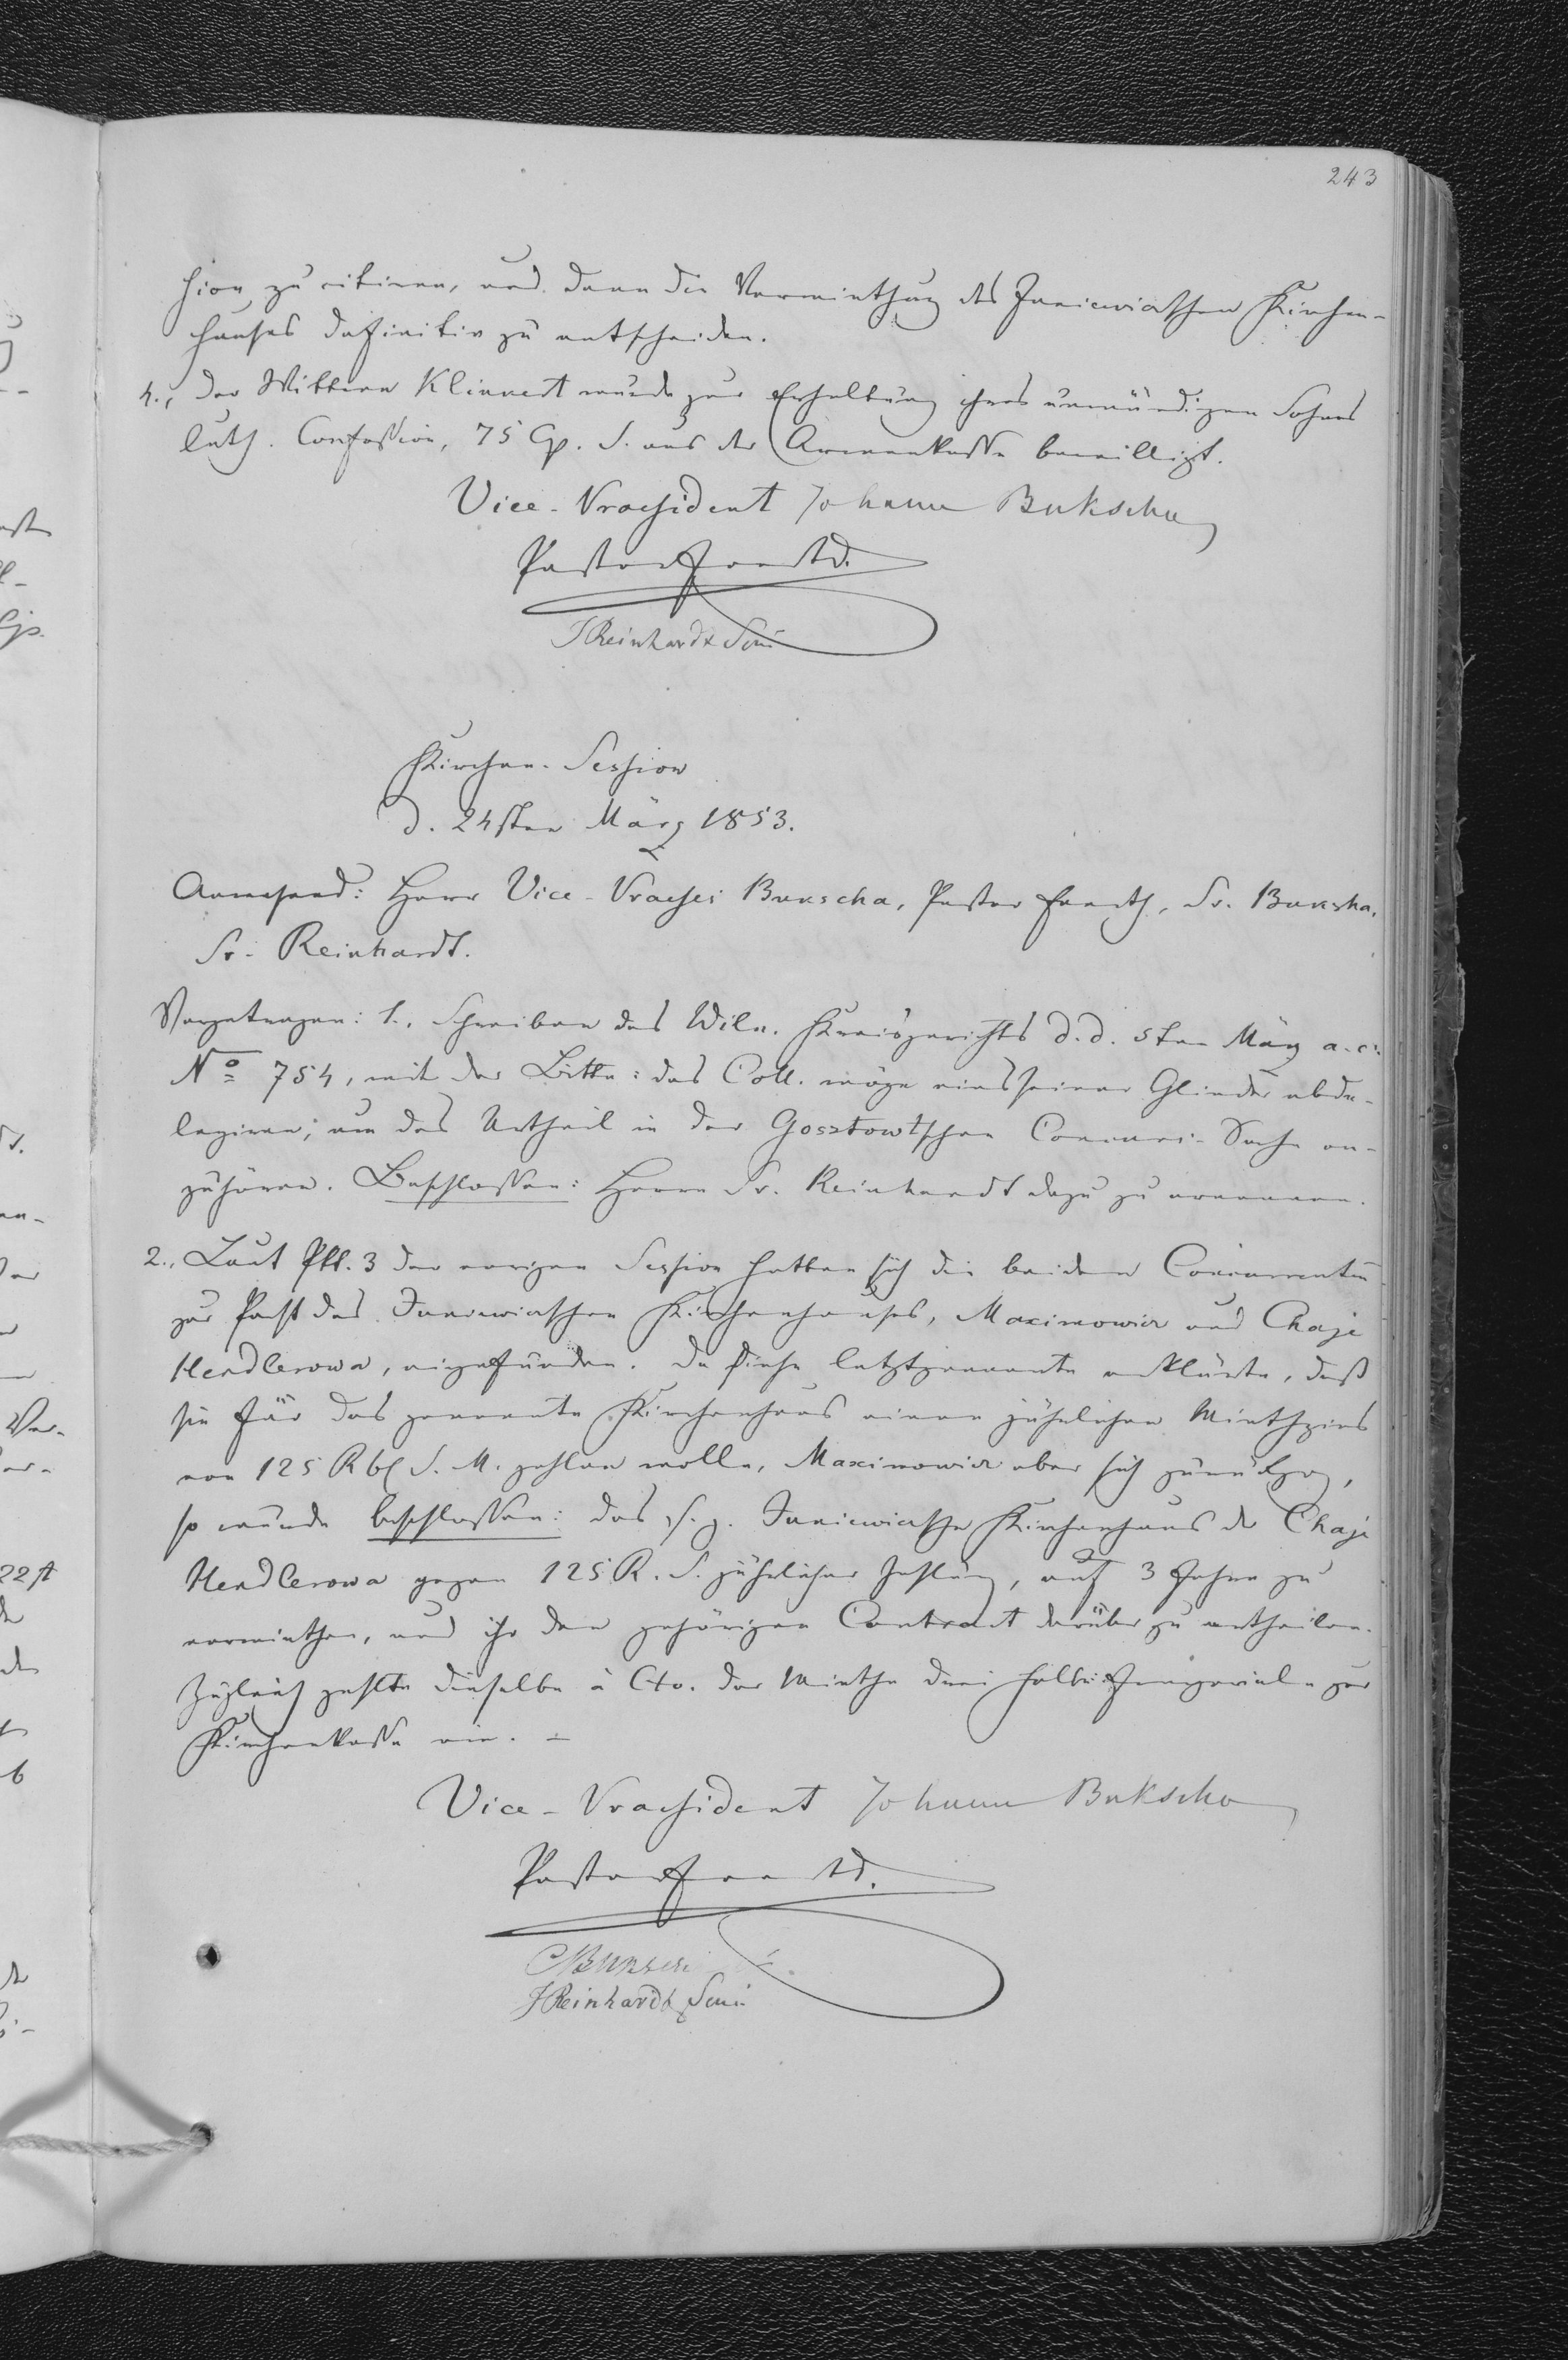 243
sion zu citiren, und dann die Vermiethung des Juniewiczschen Kirchen-
hauses definitiv zu entscheiden.
4., Der Wittwe Klinnert wurde zur Erhaltung ihres unmündigen Sohnes
luth. Confession, 75 Cp. S. aus der Armenkasse bewilligt.
Vice-Praesident Johann Bukscha
Pastor
J Reinhardt Seni
Kirchen-Session
d. 24sten März 1853.
Anwesend: Herr Vice-Praeses Bukscha, Pastor, Sr. Bukscha,
Sr. Reinhardt.
Vorgetragen: 1., Schreiben des Wiln. Kreisgerichts d. d. 5ten März a. c.
No 754, mit der Bitte: das Coll. möge eins seiner Glieder abde-
legiren, um das Urtheil in der Gosztowtschen Concurs-Sache an-
zuhören. Beschlossen: Herrn Sr. Reinhardt dazu zu ernennen.
2., Laut Pkt. 3 der vorigen Session hatten sich die beiden Concurrenten
zur Pacht des Juniewiczschen Kirchenhauses, Maximowicz und Chaje
Hendlerowa, eingefunden. Da diese letztgenannte erklärte, daß
sie für das genannte Kirchenhaus einen jährlichen Miethzins
von 125 Rbl S. M. zahlen wolle, Maximowicz aber sich zurückzog,
so wurde beschlossen: das s. g. Juniewiczsche Kirchenhaus der Chaje
Hendlerowa gegen 125 R. S. jährlicher Zahlung, auf 3 Jahre zu
vermiethen, und ihr den gehörigen Contract darüber zu ertheilen.
Zugleich zahlte dieselbe à Cto. der Miethe drei halbe Imperiale zur
Kirchenkasse ein. –
Vice-Praesident Johann Bukscha
Pastor
J Reinhardt Seni